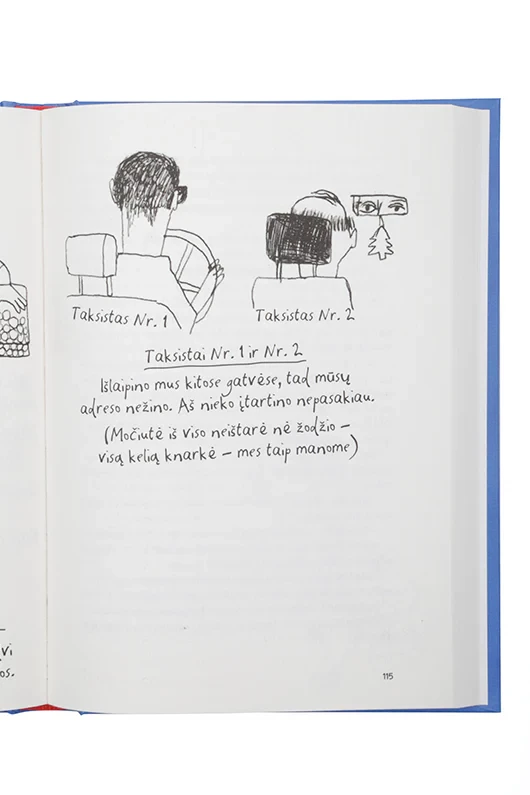 Taksistas Nr. 1
Taksistas Nr. 2
Taksistai Nr. 1 ir Nr. 2
Išlaipino mus kitose gatvėse, tad mūsų
adreso nežino. Aš nieko įtartino nepasakiau.
(Močiutė iš viso neištarė nė žodžio –
visą kelią knarkė – mes taip manome)
vi
os.
115